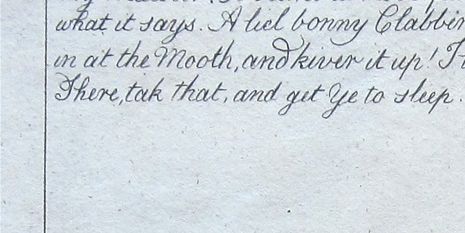 what it says. A liel bonny Clabbin
in at the Mooth, and kiver it up!
There, tak that, and get Ye to sleep.